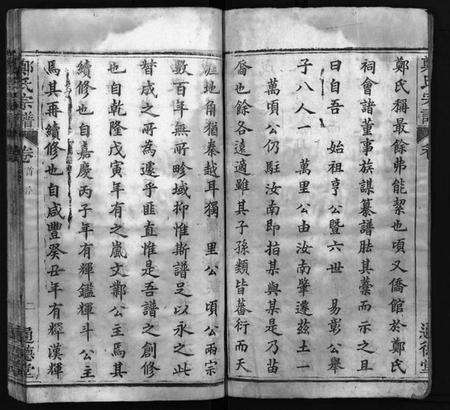 鄭氏宗譜 卷
鄭氏稱最餘弗能絜也頃又僑館於鄭氏
祠會諸董事族謀纂譜胠其藁而示之且
曰自吾 始祖亨公曁六世 易彰公舉
子八人一 萬里公由汝南肇遷茲土一
萬頃公仍駐汝南即指某與某是乃苗
裔也餘各遠適雖其子孫類皆蕃衍而天
涯地角猶秦越耳獨 里公 頃公兩宗
數百年無所畛域抑惟斯譜足以永之此
替成之所為遷乎匪直惟是吾譜之創修
也自乾隆戊寅年有之嵐文鄭公主焉其
續修也自嘉慶丙子年有輝鑑輝斗公主
焉其再續修也自咸豐癸丑年有輝漢輝
鄭氏宗譜 卷首
二
通德堂